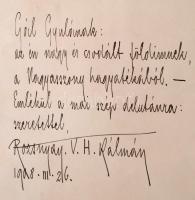 Góil Gyulának:
az én nagy és csodált földimnek,
a Nagyasszony hagyatékából. —
Emlékül a mai szép délutánra:
szeretettel,
Rozsnyay. V. H. Kálmán
1948. III. 26.